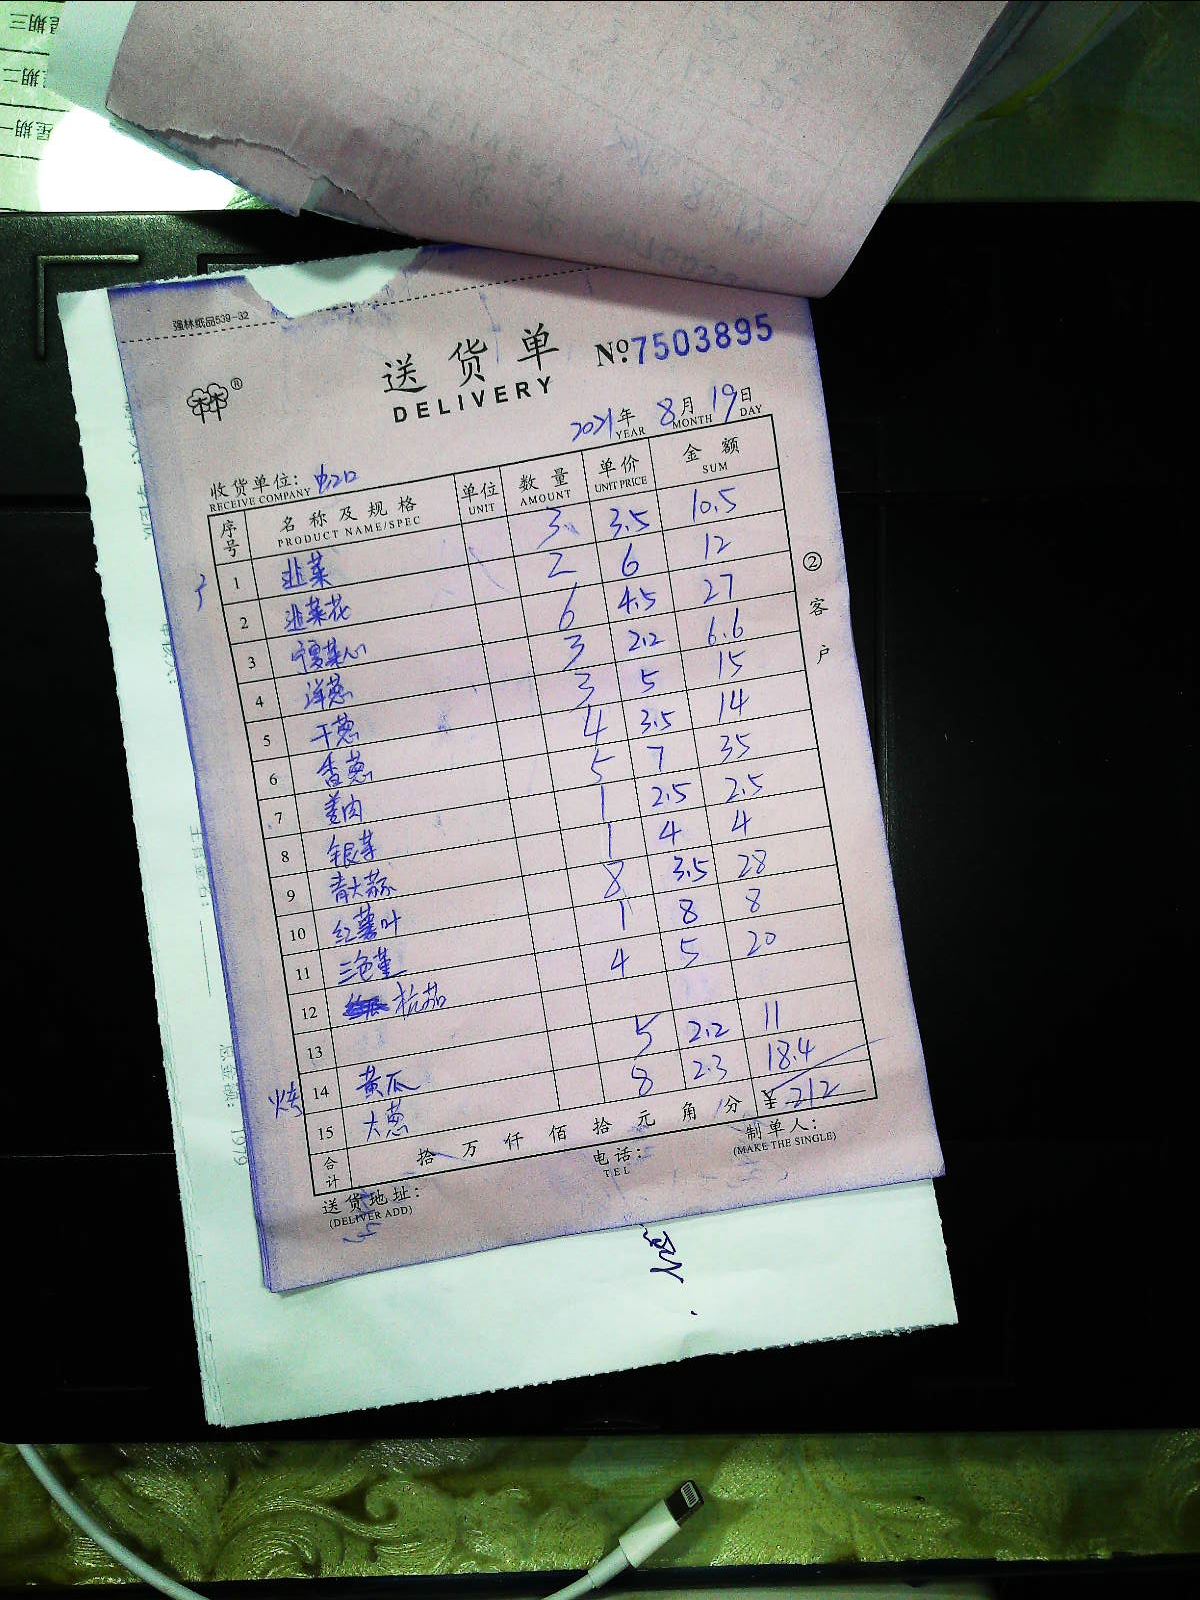 星期三
星期二
星期一
强林纸品539-32
®
送货单
DELIVERY
No.7503895
2021年 8月 19日
YEAR MONTH DAY
收货单位:
RECEIVE COMPANY
序号 名称及规格 单位 数量 单价 金额
PRODUCT NAME/SPEC UNIT AMOUNT UNIT PRICE SUM
1 韭菜 3 3.5 10.5
2 韭菜花 2 6 12
3 宁夏菜心 6 4.5 27
4 洋葱 3 2.2 6.6
5 干葱 3 5 15
6 香葱 4 3.5 14
7 姜肉 5 7 35
8 银芽 1 2.5 2.5
9 青大蒜 1 4 4
10 红薯叶 8 3.5 28
11 三色堇 1 8 8
12 杭茄 4 5 20
13
烤 14 黄瓜 5 2.2 11
15 大葱 8 2.3 18.4
合计 拾 万 仟 佰 拾 元 角 分 ¥212
送货地址:
(DELIVER ADD)
电话:
TEL
制单人:
(MAKE THE SINGLE)
②客户